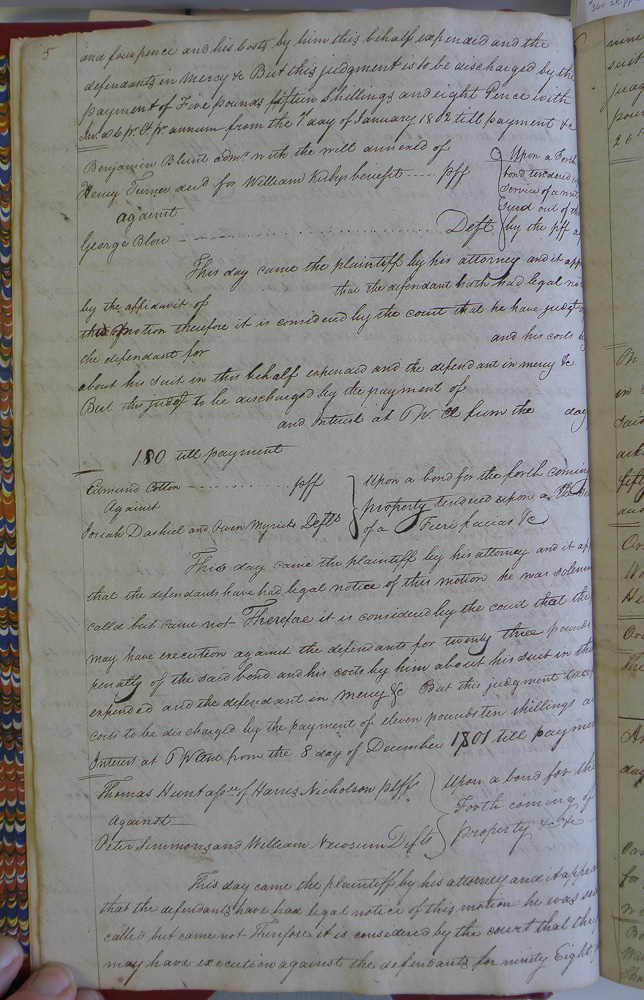 5
and four pence and his costs by him this behalf expended and the
defendants in Mercy &c But this judgment is to be discharged by the
payment of Five pounds fifteen Shillings and eight Pence with
annum from the 7 day of January 1802 till payment &c
Benjamin Blunt adm with the will annexed of
Henry Turner decd for William Kirbys benefit pff
against
George Blow Deft
Upon a Forth
bond tendered in
service of a writ
sued out of
by the pff
This day came the plaintiff by his attorney and it app
by the affidavit of that the defendant hath had legal no
motion therefore it is considered by the court that he have judgt
the defendant for and his costs
about his suit in this behalf expended and the defendant in mercy &c
But this judgt to be discharged by the payment of
and Interest at from the day
180 till payment
Edmund Cotton pff
Against
Josiah Dashiel and Owen Myrick Defts
Upon a bond for the forth coming
property tendered upon a
of a Fieri facias &c
This day came the plaintiff by his attorney and it app
that the defendants have had legal notice of this motion he was solem
calld but came not Therefore it is considered by the court that the
may have execution against the defendants for twenty three pounds
penalty of the said bond and his costs by him about his suit in this
expended and the defendant in mercy &c But this judgment
costs to be discharged by the payment of eleven pounds ten shillings
Interest at from the 8 day of December 1801 till payme
Thomas Hunt of Harris Nicholson plff
against
Peter Simmons and William Newsum Defts
Upon a bond for the
Forth coming of
property &c &c
This day came the plaintiff by his attorney and it appea
that the defendants have had legal notice of this motion he was
called but came not Therefore it is considered by the court that the
may have execution against the defendants for ninety Eight